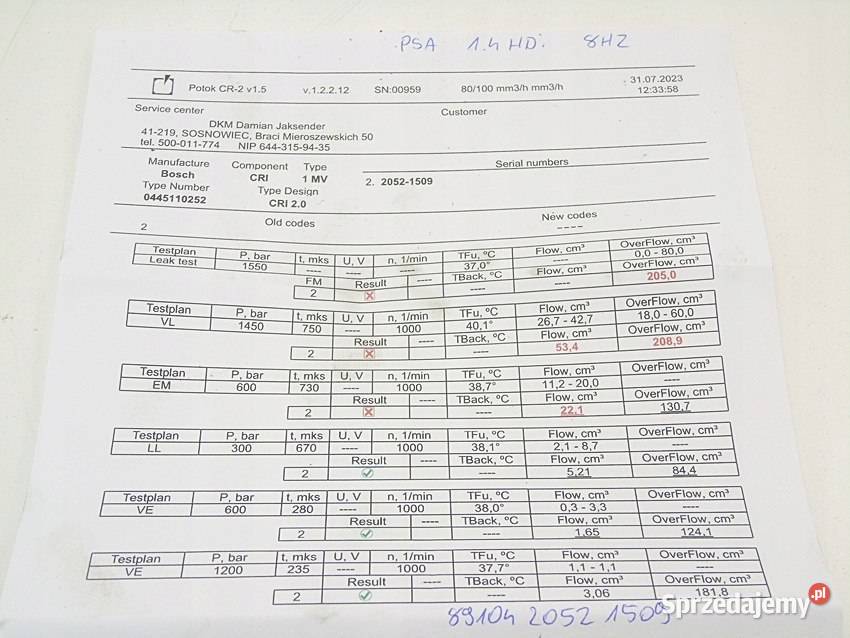 PSA 1.4 HDi 8HZ
Potok CR-2 v1.5 v.1.2.2.12 SN:00959 80/100 mm3/h mm3/h 31.07.2023 12:33:58
Service center Customer
DKM Damian Jaksender
41-219, SOSNOWIEC, Braci Mieroszewskich 50
tel. 500-011-774 NIP 644-315-94-35
Manufacture Component Type Serial numbers
Bosch CRI 1 MV 2. 2052-1509
Type Number Type Design
0445110252 CRI 2.0
Old codes New codes
2 ----
Testplan P, bar t, mks U, V n, 1/min TFu, ºC Flow, cm³ OverFlow, cm³
Leak test 1550 ---- ---- ---- 37,0° ---- 0,0 - 80,0
FM Result ---- TBack, ºC Flow, cm³ OverFlow, cm³
2 ---- ---- 205,0
Testplan P, bar t, mks U, V n, 1/min TFu, ºC Flow, cm³ OverFlow, cm³
VL 1450 750 ---- 1000 40,1° 26,7 - 42,7 18,0 - 60,0
Result ---- TBack, ºC Flow, cm³ OverFlow, cm³
2 ---- 53,4 208,9
Testplan P, bar t, mks U, V n, 1/min TFu, ºC Flow, cm³ OverFlow, cm³
EM 600 730 ---- 1000 38,7° 11,2 - 20,0 ----
Result ---- TBack, ºC Flow, cm³ OverFlow, cm³
2 ---- 22,1 130,7
Testplan P, bar t, mks U, V n, 1/min TFu, ºC Flow, cm³ OverFlow, cm³
LL 300 670 ---- 1000 38,1° 2,1 - 8,7 ----
Result ---- TBack, ºC Flow, cm³ OverFlow, cm³
2 ---- 5,21 84,4
Testplan P, bar t, mks U, V n, 1/min TFu, ºC Flow, cm³ OverFlow, cm³
VE 600 280 ---- 1000 38,0° 0,3 - 3,3 ----
Result ---- TBack, ºC Flow, cm³ OverFlow, cm³
2 ---- 1,65 124,1
Testplan P, bar t, mks U, V n, 1/min TFu, ºC Flow, cm³ OverFlow, cm³
VE 1200 235 ---- 1000 37,7° 1,1 - 1,1 ----
Result ---- TBack, ºC Flow, cm³ OverFlow, cm³
2 ---- 3,06 181,8
89104 2052 1509
Sprzedajemy.pl